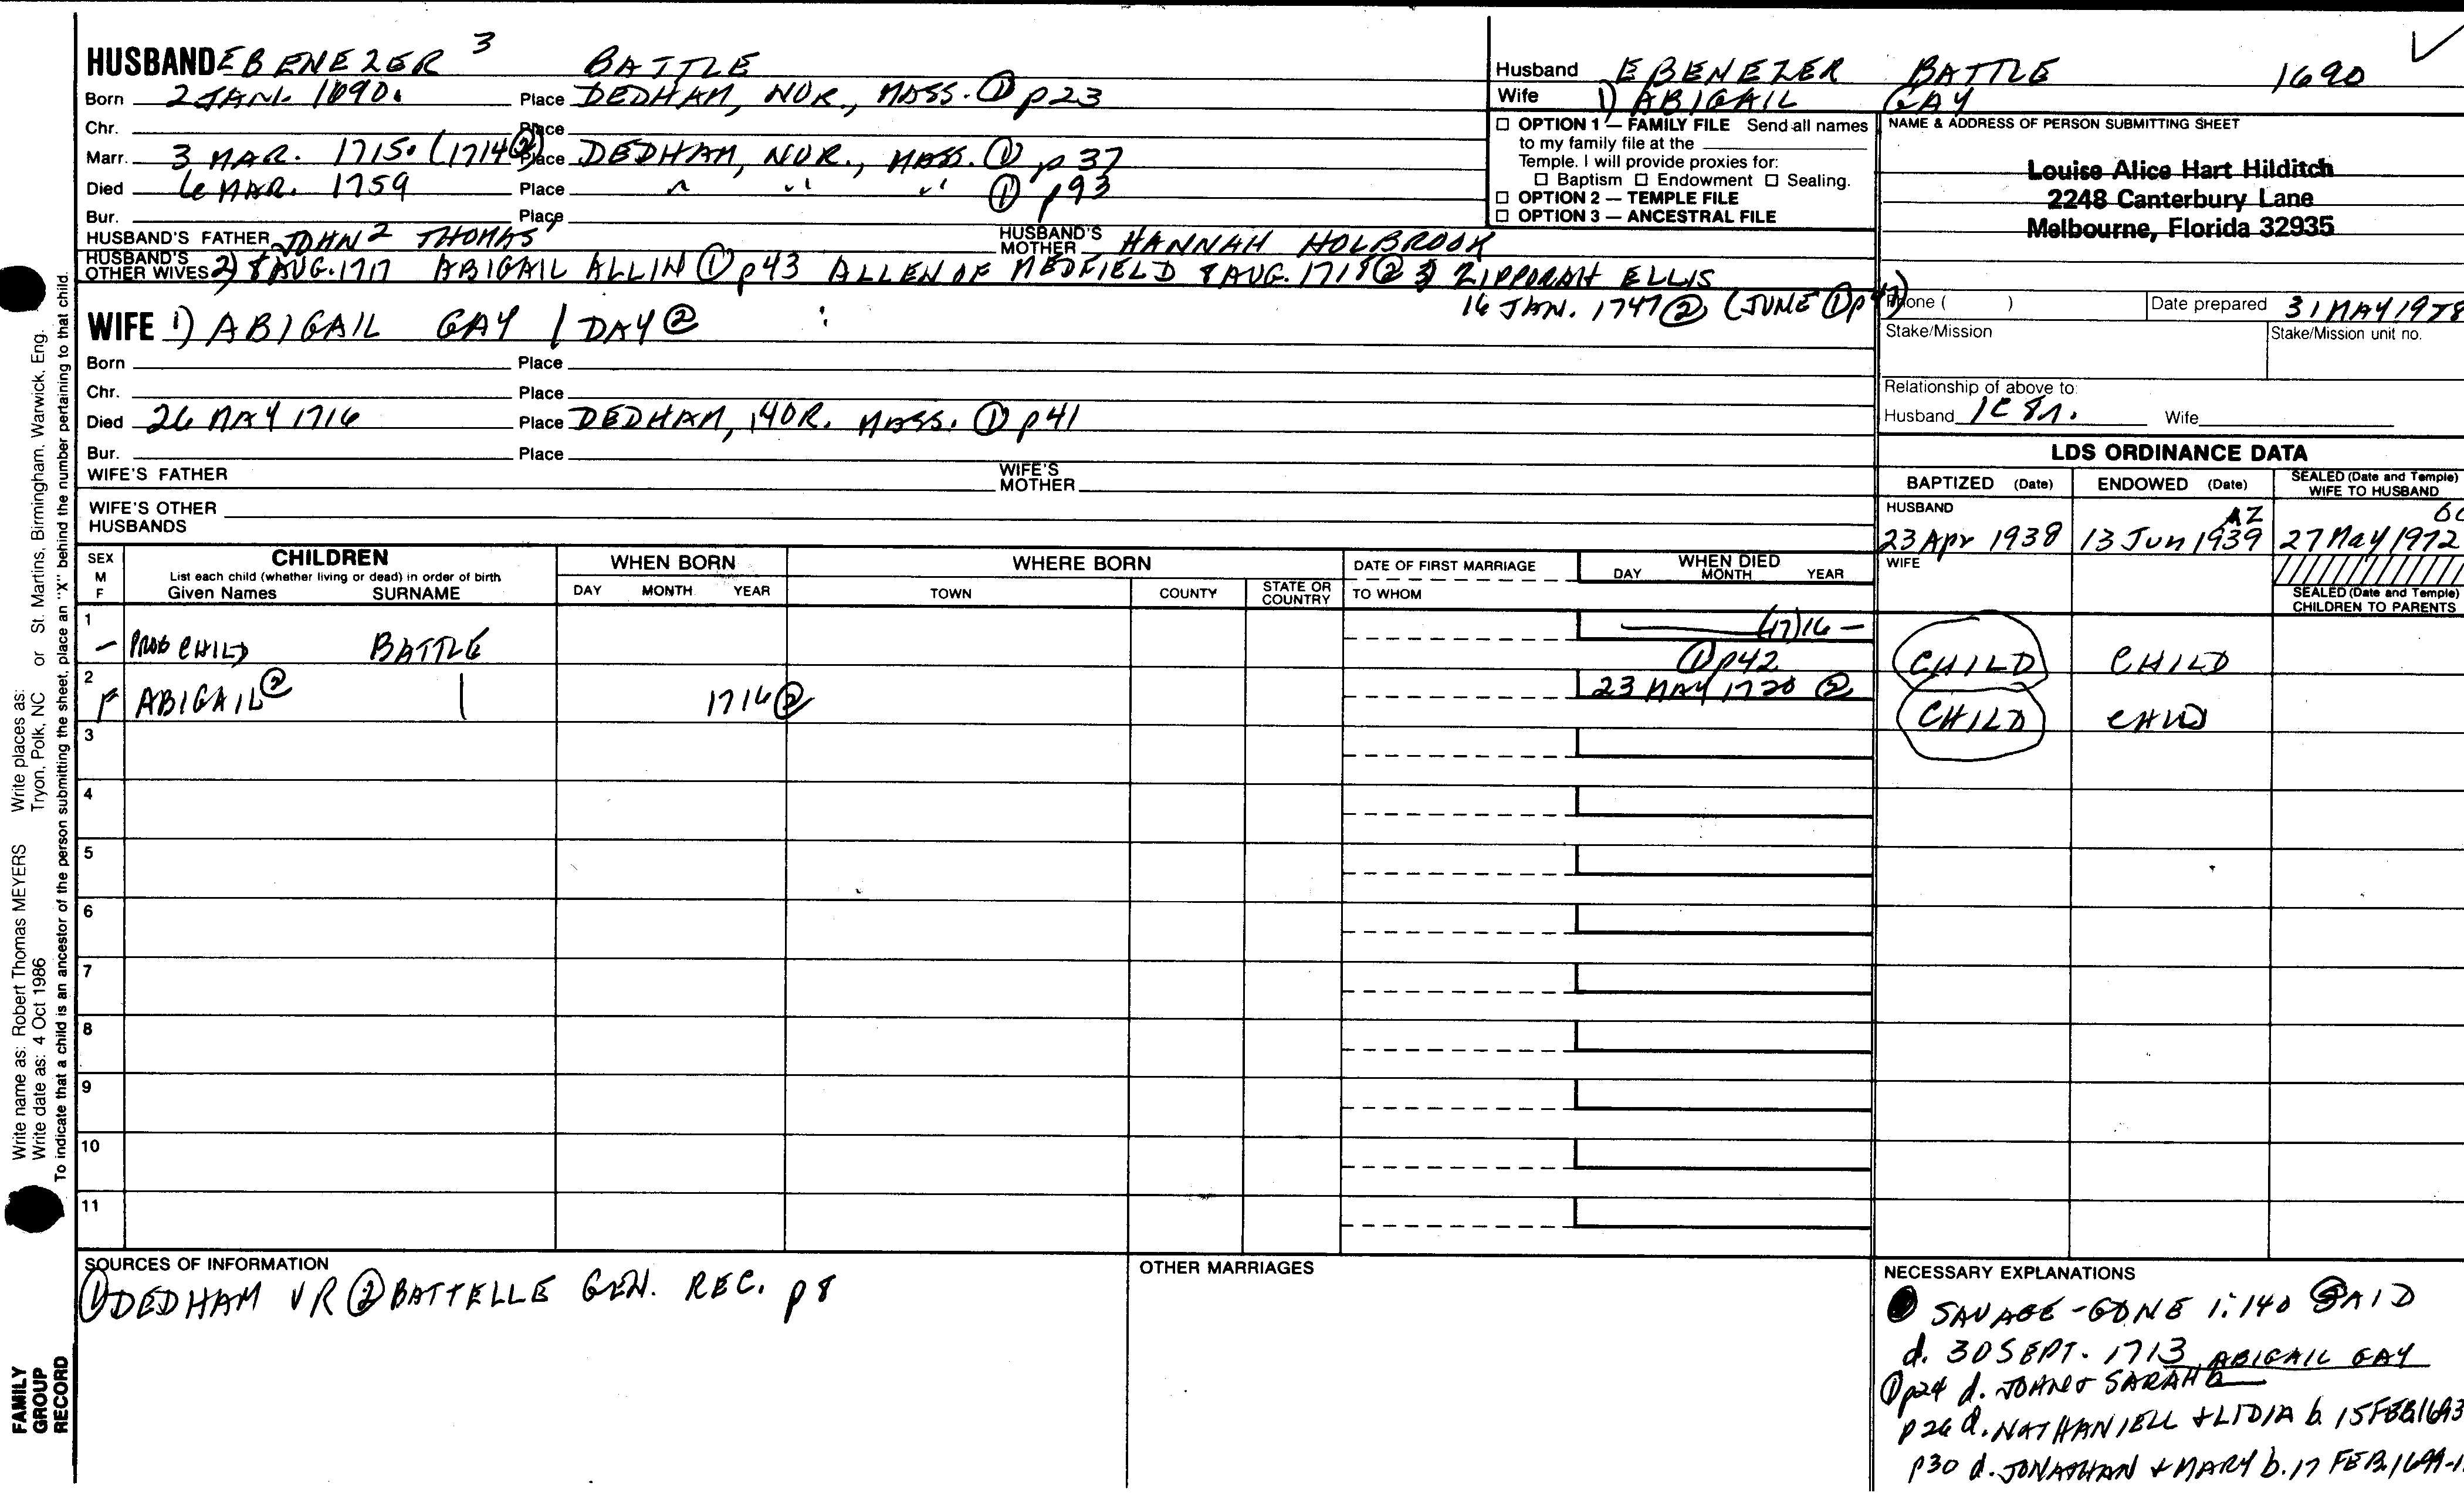 HUSBAND EBENEZER 3 BATTLE
Born 2 JAN. 1690. Place DEDHAM, NOR., MASS. ① p23
Chr. Place
Marr. 3 MAR. 1715. (1714②) Place DEDHAM, NOR., MASS. ① p37
Died 6 MAR. 1759 Place " " " ① p93
Bur. Place
HUSBAND'S FATHER JOHN 2 THOMAS 1 HUSBAND'S MOTHER HANNAH HOLBROOK
HUSBAND'S OTHER WIVES 2) 8 AUG. 1717 ABIGAIL ALLIN ① p43 ALLEN OF MEDFIELD 8 AUG. 1718 ② 3 ZIPPORAH ELLIS
16 JAN. 1747 ② (JUNE ① p47)
WIFE 1) ABIGAIL GAY / DAY ②
Born Place
Chr. Place
Died 26 MAY 1716 Place DEDHAM, NOR. MASS. ① p41
Bur. Place
WIFE'S FATHER WIFE'S MOTHER
WIFE'S OTHER HUSBANDS
Husband EBENEZER BATTLE 1690
Wife 1) ABIGAIL GAY
☐ OPTION 1 — FAMILY FILE Send all names
to my family file at the
Temple. I will provide proxies for:
☐ Baptism ☐ Endowment ☐ Sealing.
☐ OPTION 2 — TEMPLE FILE
☐ OPTION 3 — ANCESTRAL FILE
NAME & ADDRESS OF PERSON SUBMITTING SHEET
Louise Alice Hart Hilditch
2248 Canterbury Lane
Melbourne, Florida 32935
Phone ( ) Date prepared 31 MAY 1978
Stake/Mission Stake/Mission unit no.
Relationship of above to:
Husband 1C 8r. Wife
LDS ORDINANCE DATA
BAPTIZED (Date) ENDOWED (Date) SEALED (Date and Temple) WIFE TO HUSBAND
HUSBAND
AZ
23 Apr 1938 13 Jun 1939 27 May 1972
WIFE
SEALED (Date and Temple) CHILDREN TO PARENTS
SEX M F CHILDREN WHEN BORN WHERE BORN DATE OF FIRST MARRIAGE WHEN DIED
List each child (whether living or dead) in order of birth
Given Names SURNAME DAY MONTH YEAR TOWN COUNTY STATE OR COUNTRY TO WHOM DAY MONTH YEAR
1 — PROB CHILD BATTLE (17)16 — ① p42 CHILD CHILD
2 F ABIGAIL ② | 1716 ② 23 MAY 1720 ② CHILD CHILD
3
4
5
6
7
8
9
10
11
SOURCES OF INFORMATION
① DEDHAM VR ② BATTELLE GEN. REC. p8
OTHER MARRIAGES
NECESSARY EXPLANATIONS
SAVAGE - GONE 1:140 SAID
d. 30 SEPT. 1713 ABIGAIL GAY
① p24 d. JOHN & SARAH
p26 d. NATHANIELL & LIDIA b. 15 FEB 1693
p30 d. JONATHAN & MARY b. 17 FEB. 1699-1
Write name as: Robert Thomas MEYERS Write places as: St. Martins, Birmingham, Warwick, Eng.
Write date as: 4 Oct 1986 Tryon, Polk, NC or
To indicate that a child is an ancestor of the person submitting the sheet, place an "X" behind the number pertaining to that child.
FAMILY
GROUP
RECORD